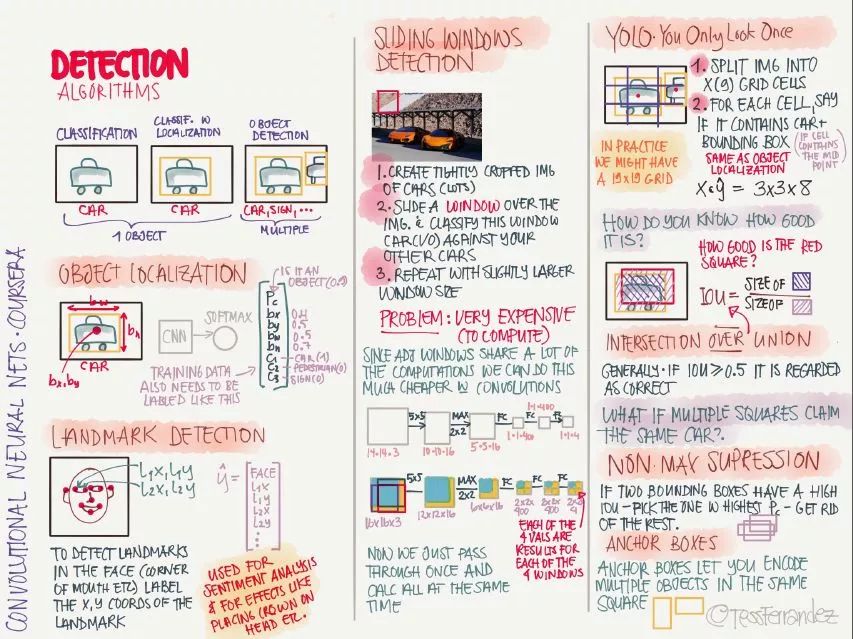 CONVOLUTIONAL NEURAL NETS · COURSERA
DETECTION
ALGORITHMS
CLASSIFICATION
CLASSIF. W
LOCALIZATION
OBJECT
DETECTION
CAR
CAR
CAR, SIGN, ...
1 OBJECT
MULTIPLE
OBJECT LOCALIZATION
bw
bh
CAR
bx, by
CNN
SOFTMAX
TRAINING DATA
ALSO NEEDS TO BE
LABLED LIKE THIS
IS IT AN
OBJECT (0.1)
Pc
bx 0.4
by 0.5
bw 0.5
bh 0.7
C1 - CAR (1)
C2 - PEDESTRIAN (0)
C3 - SIGN (0)
LANDMARK DETECTION
l1x, l1y
l2x, l2y
ŷ =
FACE
l1x
l1y
l2x
l2y
⋮
TO DETECT LANDMARKS
IN THE FACE (CORNER
OF MOUTH ETC) LABEL
THE X,Y COORDS OF THE
LANDMARK
USED FOR
SENTIMENT ANALYSIS
& FOR EFFECTS LIKE
PLACING CROWN ON
HEAD ETC.
SLIDING WINDOWS
DETECTION
1. CREATE TIGHTLY CROPPED IMG
OF CARS (LOTS)
2. SLIDE A WINDOW OVER THE
IMG. & CLASSIFY THIS WINDOW
CAR (1/0) AGAINST YOUR
OTHER CARS
3. REPEAT WITH SLIGHTLY LARGER
WINDOW SIZE
PROBLEM: VERY EXPENSIVE
(TO COMPUTE)
SINCE ADJ WINDOWS SHARE A LOT OF
THE COMPUTATIONS WE CAN DO THIS
MUCH CHEAPER W CONVOLUTIONS
5x5 MAX 2x2 FC FC
14·14·3 10·10·16 5·5·16 1·1·400 1·1·400 1·1·4
5x5 MAX 2x2 FC FC FC
16x16x3 12x12x16 6x6x16 2x2x400 2x2x400 2x2x4
EACH OF THE
4 VALS ARE
RESULTS FOR
EACH OF THE
4 WINDOWS
NOW WE JUST PASS
THROUGH ONCE AND
CALC ALL AT THE SAME
TIME
YOLO · You Only Look Once
1. SPLIT IMG INTO
X (9) GRID CELLS
2. FOR EACH CELL, SAY
IF IT CONTAINS CAR +
BOUNDING BOX (IF CELL
CONTAINS
THE MID
POINT)
SAME AS OBJECT
LOCALIZATION
IN PRACTICE
WE MIGHT HAVE
A 19x19 GRID
X & ŷ = 3x3x8
HOW DO YOU KNOW HOW GOOD
IT IS?
HOW GOOD IS THE RED
SQUARE?
IOU = SIZE OF
SIZE OF
INTERSECTION OVER UNION
GENERALLY · IF IOU ≥ 0.5 IT IS REGARDED
AS CORRECT
WHAT IF MULTIPLE SQUARES CLAIM
THE SAME CAR?
NON-MAX SUPRESSION
IF TWO BOUNDING BOXES HAVE A HIGH
IOU - PICK THE ONE W HIGHEST Pc - GET RID
OF THE REST.
ANCHOR BOXES
ANCHOR BOXES LET YOU ENCODE
MULTIPLE OBJECTS IN THE SAME
SQUARE
@TessFerrandez